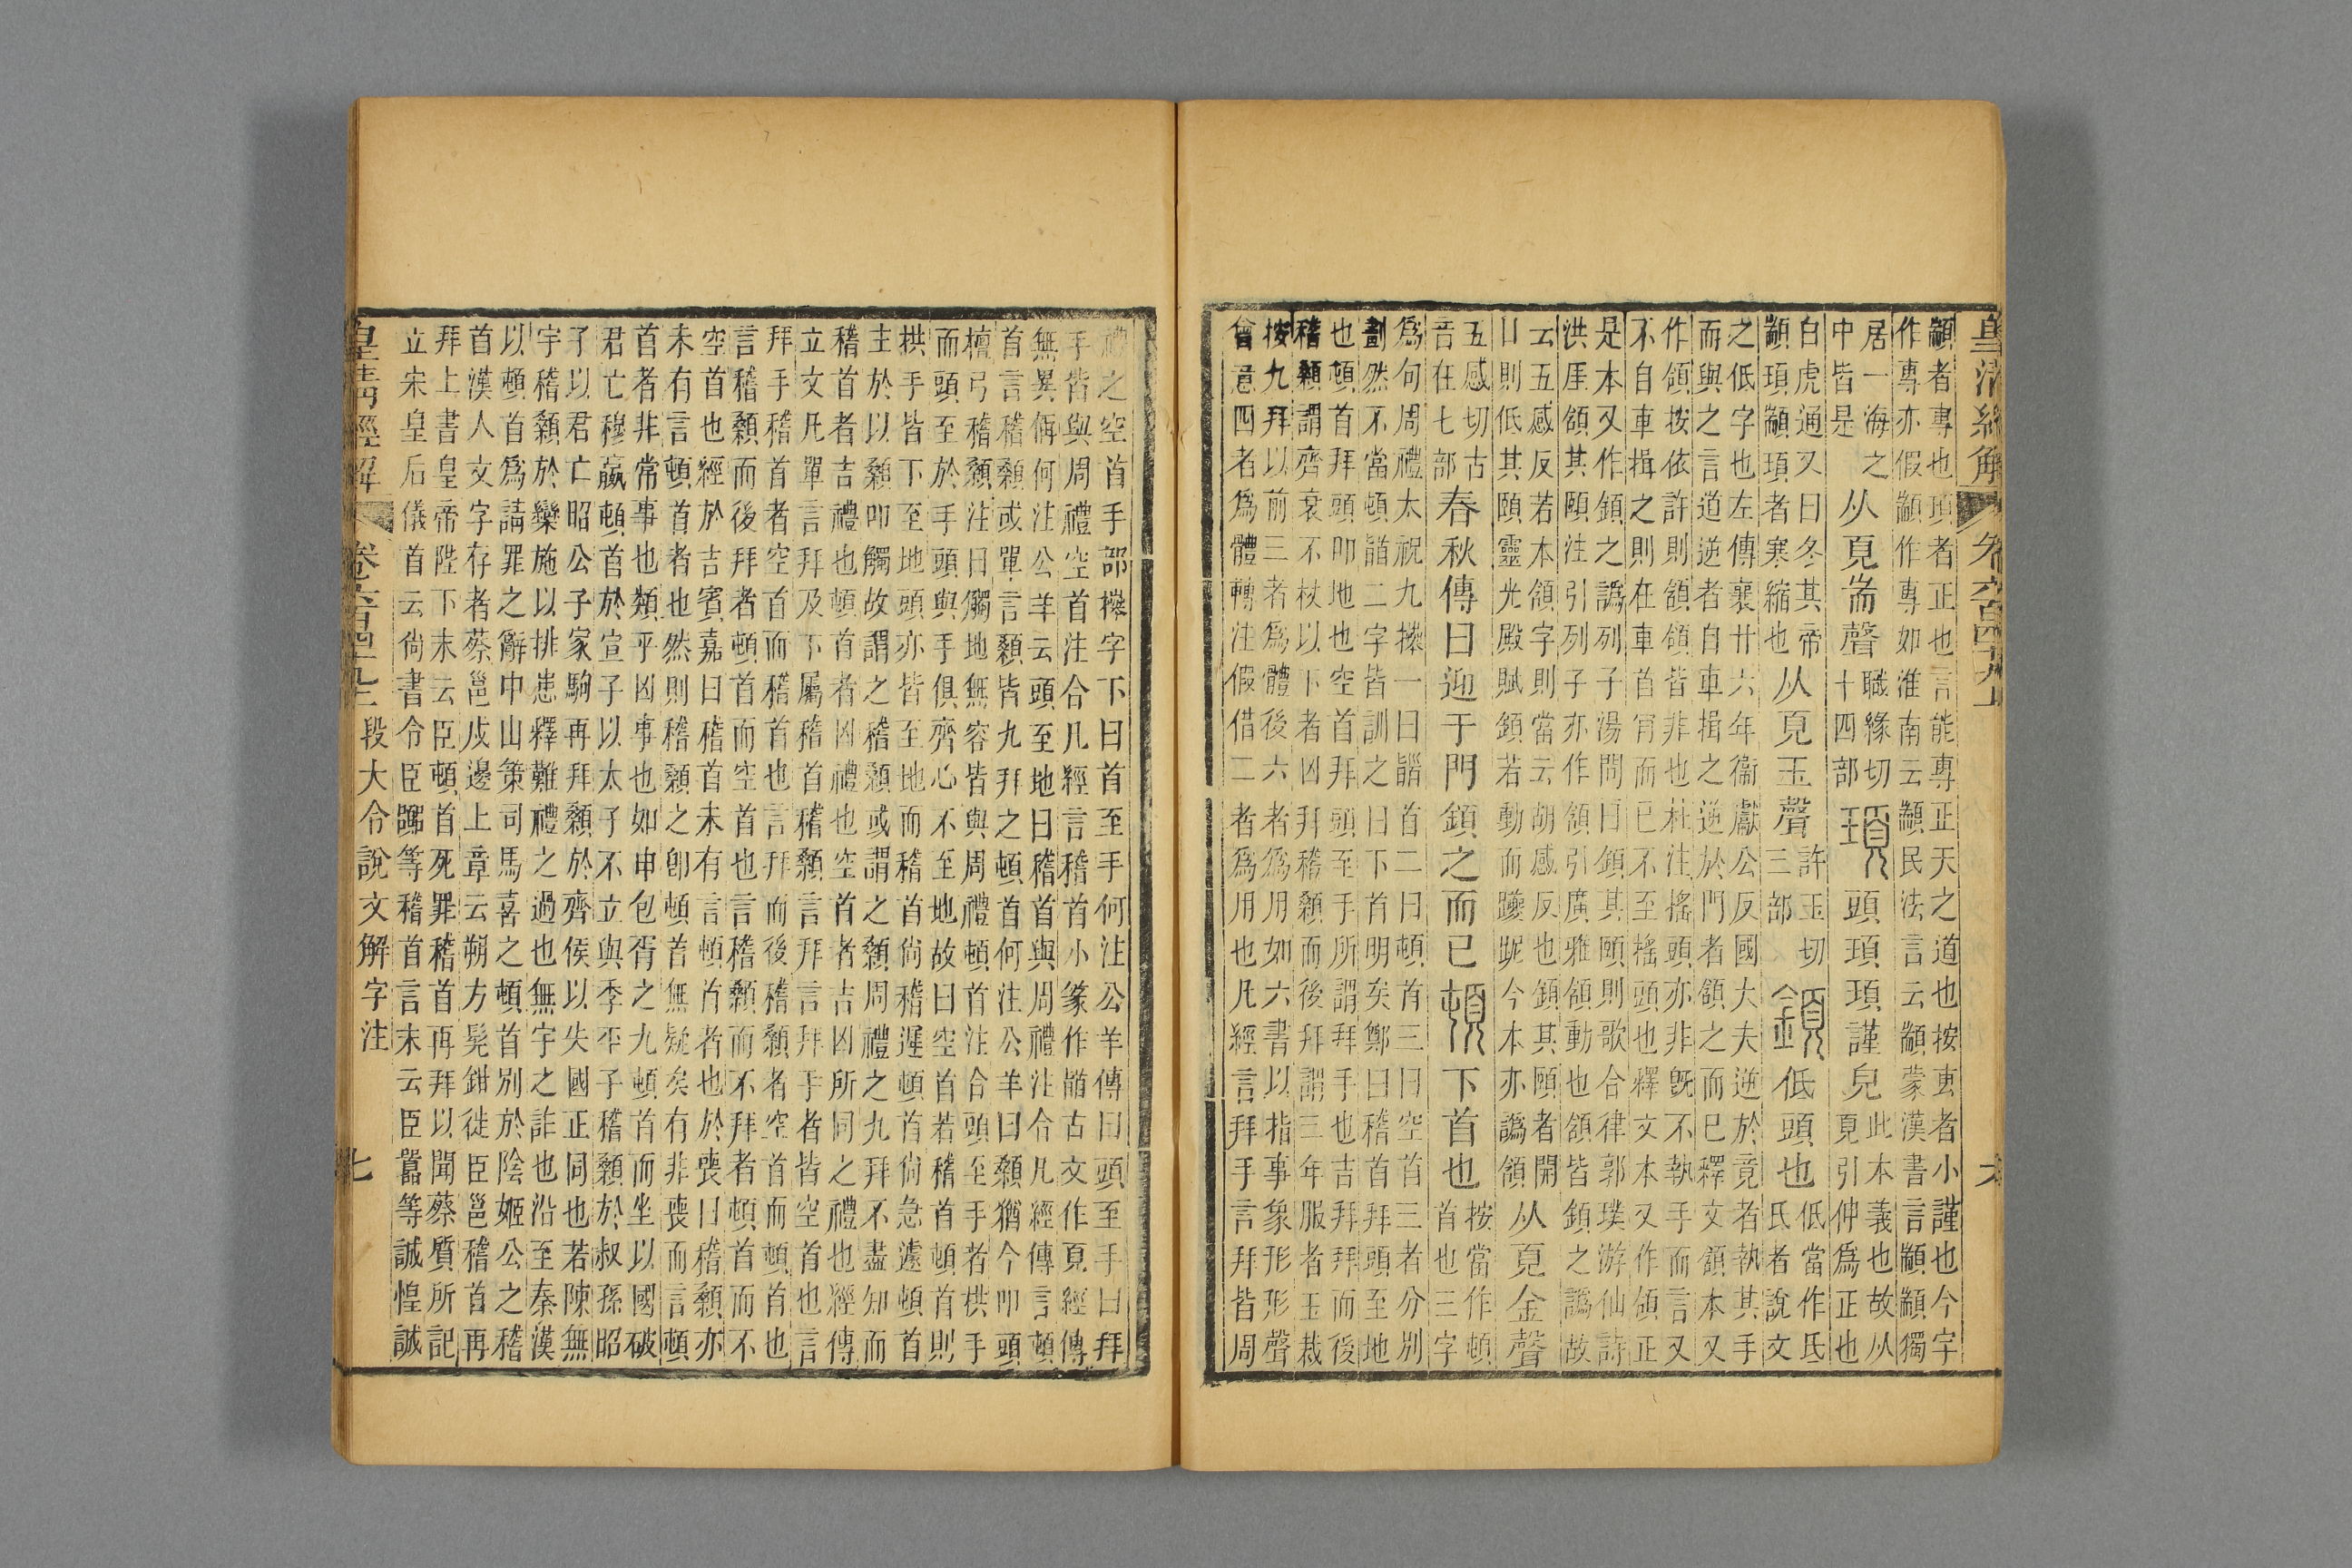 皇清經解 卷六百四十九上 六
顓者專也頊者正也言能專正天之道也按叀者小謹也今字
作專亦假顓作專如淮南云顓民法言云顓蒙漢書言顓顓獨
居一海之
中皆是
从頁耑聲
職緣切
十四部
頊頭頊頊謹皃
此本義也故从
頁引伸爲正也
白虎通又曰冬其帝
顓頊顓頊者寒縮也
从頁玉聲
許玉切
三部
顉低頭也
低當作氐
氐者說文
之低字也左傳襄廿六年衞獻公反國大夫逆於竟者執其手
而與之言道逆者自車揖之逆於門者頷之而已釋文頷本又
作頜按依許則頜頷皆非也杜注搖頭亦非旣不執手而言又
不自車揖之則在車首肎而已不至搖頭也釋文本又作頜正
是本又作顉之譌列子湯問曰顉其頤則歌合律郭璞游仙詩
洪厓頷其頤注引列子亦作頷引廣雅頷動也頷皆顉之譌故
云五感反若本頷字則當云胡感反也顉其頤者開
口則低其頤靈光殿賦顉若動而躨跜今本亦譌頷
从頁金聲
五感切古
音在七部
春秋傳曰迎于門顉之而已頓下首也
按當作頓
首也三字
爲句周禮太祝九𢷎一曰䭫首二曰頓首三曰空首三者分別
劃然不當頓䭫二字皆訓之曰下首明矣鄭曰稽首拜頭至地
也頓首拜頭叩地也空首拜頭至手所謂拜手也吉拜拜而後
稽顙謂齊衰不杖以下者凶拜稽顙而後拜謂三年服者玉裁
按九拜以前三者爲體後六者爲用如六書以指事象形形聲
會意四者爲體轉注假借二者爲用也凡經言拜手言拜皆周
禮之空首手部𢷎字下曰首至手何注公羊傳曰頭至手曰拜
手皆與周禮空首注合凡經言稽首小篆作䭫古文作𩠐經傳
無異偁何注公羊云頭至地曰稽首與周禮注合凡經傳言頓
首言稽顙或單言顙皆九拜之頓首何注公羊曰顙猶今叩頭
檀弓稽顙注曰觸地無容皆與周禮頓首注合頭至手者栱手
而頭至於手頭與手俱齊心不至地故曰空首若稽首頓首則
拱手皆下至地頭亦皆至地而稽首尙稽遲頓首尙急遽頓首
主於以顙叩觸故謂之稽顙或謂之顙周禮之九拜不盡知而
稽首者吉禮也頓首者凶禮也空首者吉凶所同之禮也經傳
立文凡單言拜及下屬稽首稽顙言拜言拜手者皆空首也言
拜手稽首者空首而稽首也言拜而後稽顙者空首而頓首也
言稽顙而後拜者頓首而空首也言稽顙而不拜者頓首而不
空首也經於吉賓嘉曰稽首未有言頓首者也於喪曰稽顙亦
未有言頓首者也然則稽顙之卽頓首無疑矣有非喪而言頓
首者非常事也類乎凶事也如申包胥之九頓首而坐以國破
君亡穆嬴頓首於宣子以太子不立與季平子稽顙於叔孫昭
子以君亡昭公子家駒再拜顙於齊侯以失國正同也若陳無
宇稽顙於欒施以排患釋難禮之過也無宇之詐也沿至秦漢
以頓首爲請罪之辭中山策司馬喜之頓首別於陰姬公之稽
首漢人文字存者蔡邕戍邊上章云朔方髠鉗徒臣邕稽首再
拜上書皇帝陛下末云臣頓首死罪稽首再拜以聞蔡質所記
立宋皇后儀首云尙書令臣囂等稽首言末云臣囂等誠惶誠
皇淸經解 卷六百四十九上 段大令說文解字注 七